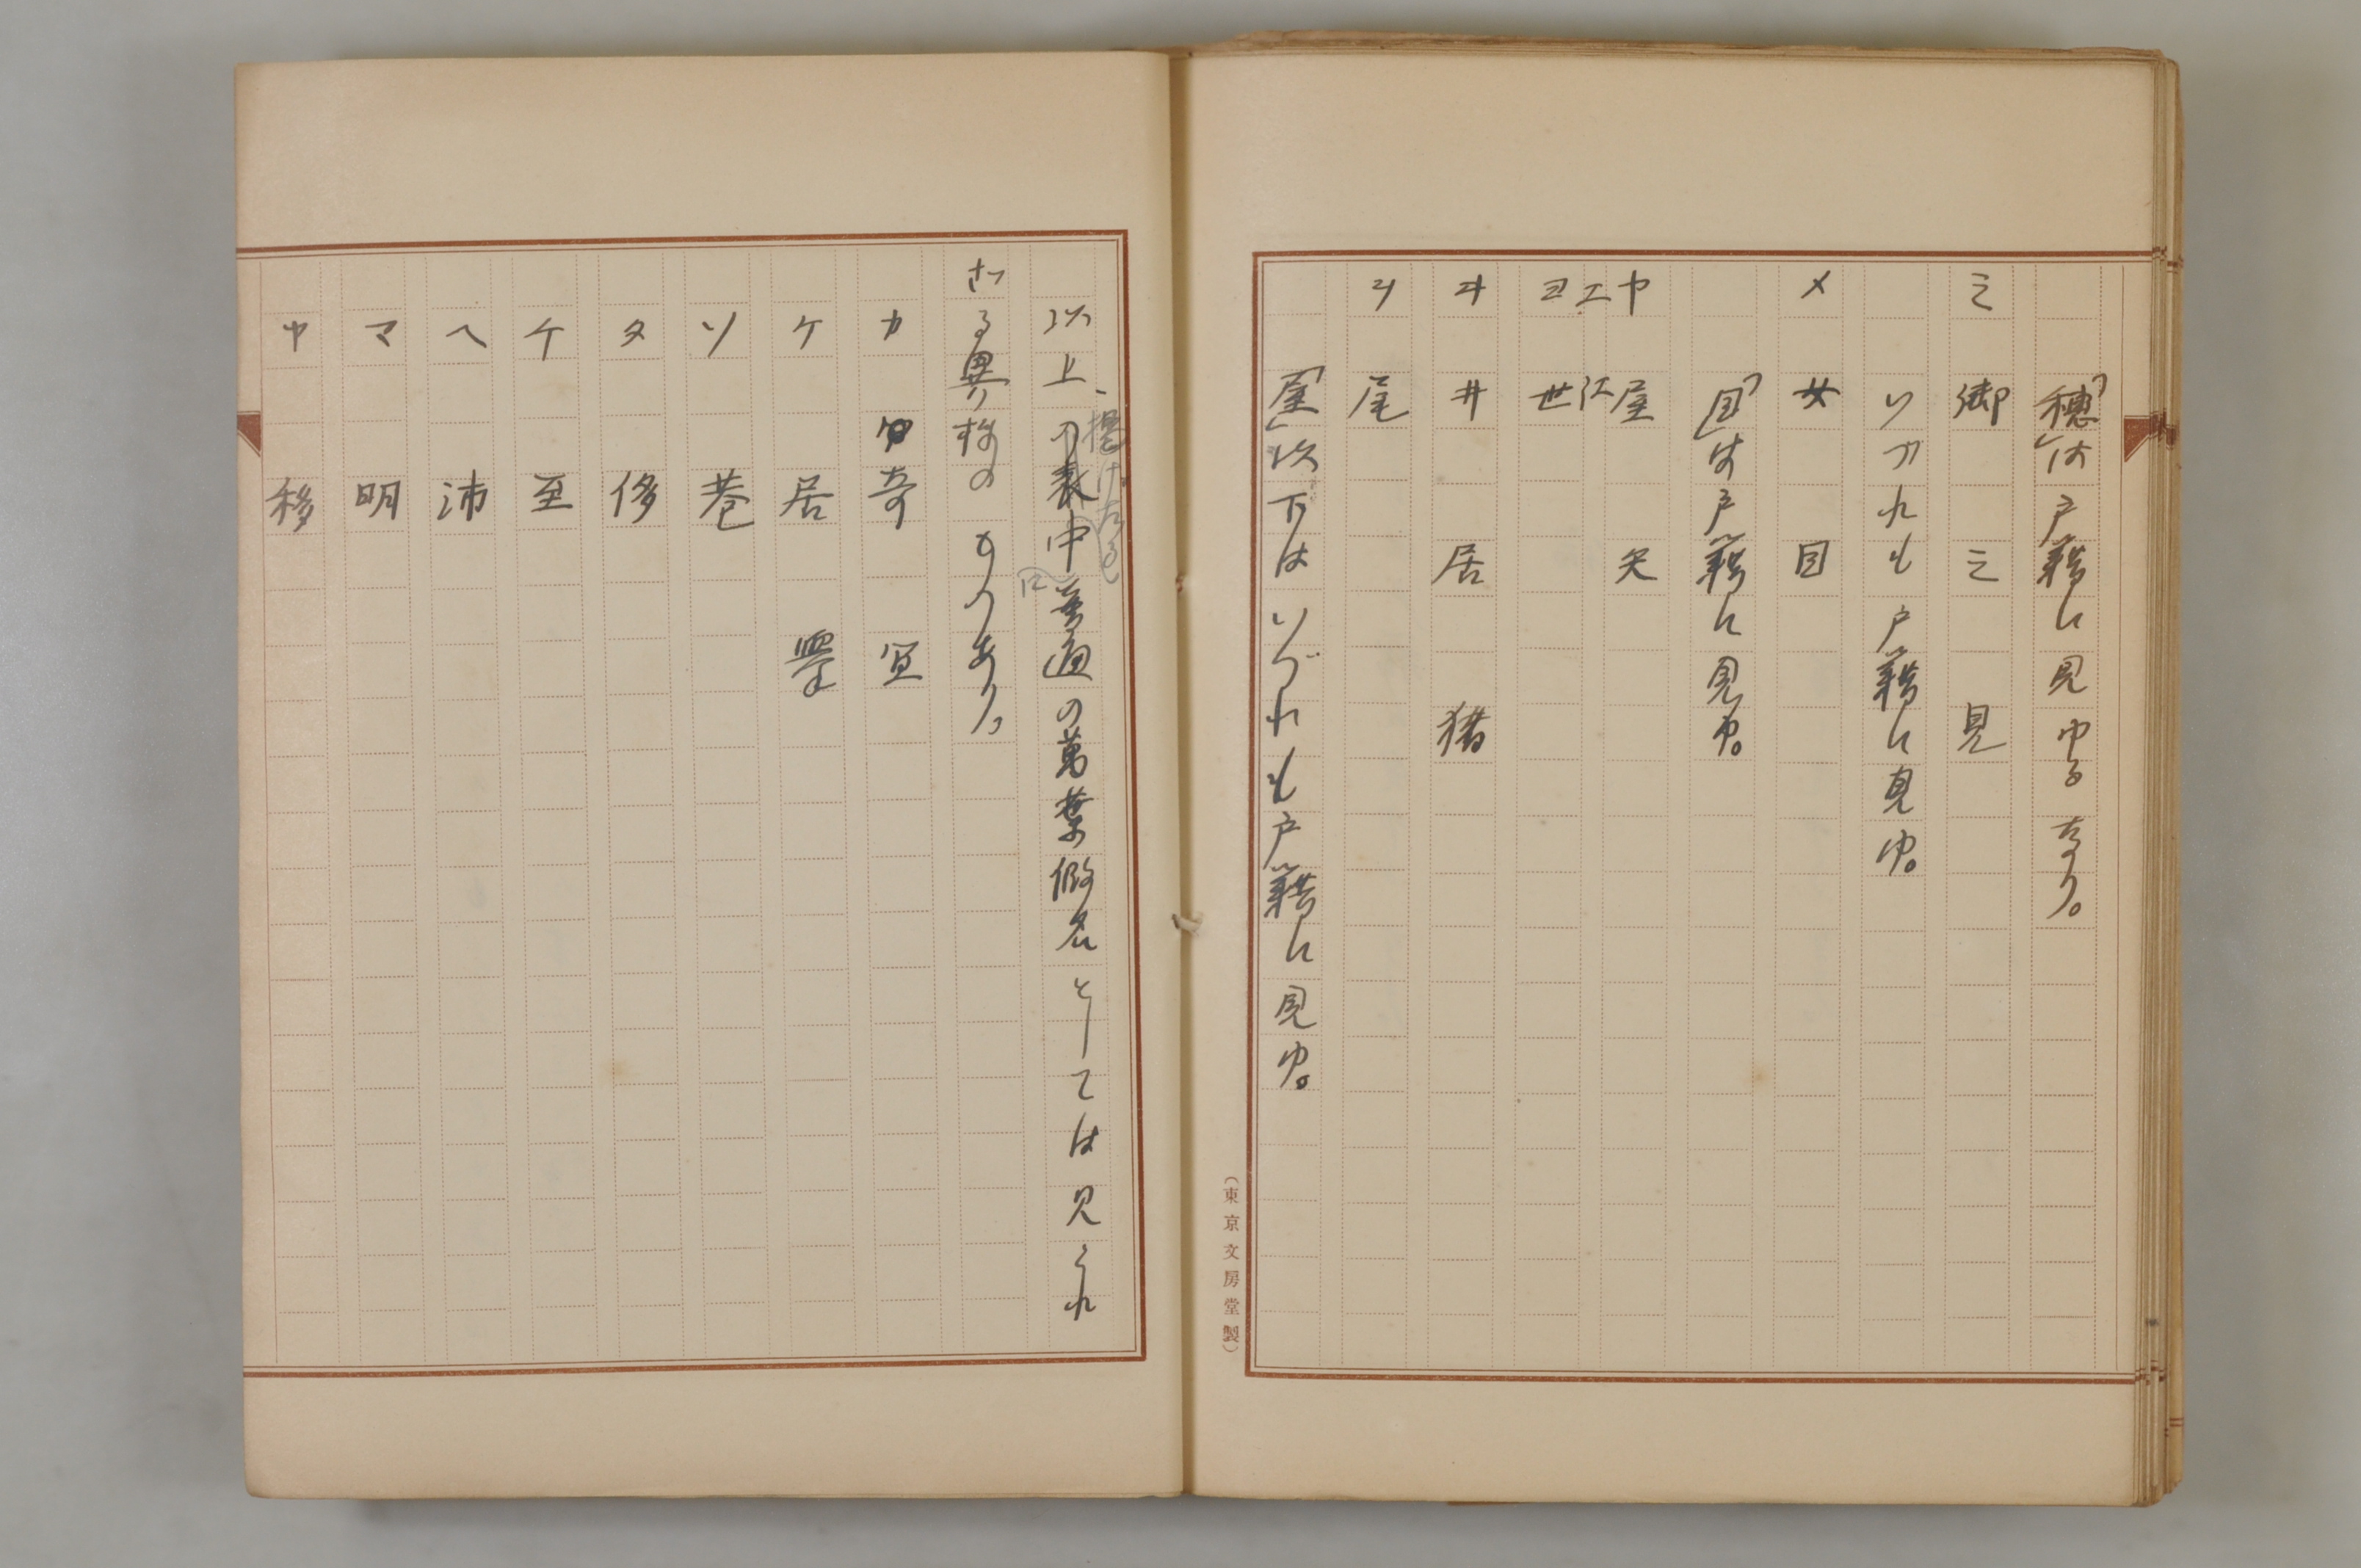 「穂」は戸籍に見ゆるなり。
ミ 御 三 見
いづれも戸籍に見ゆ。
メ 女 目
「目」は戸籍に見ゆ。
ヤ 屋 矢
エ 江
ヨ 世
ヰ 井 居 猪
ヲ 尾
「屋」以下はいづれも戸籍に見ゆ。
(東京文房堂製)
以上、掲げたるの表中に普通の萬葉假名としては見られ
ざる異様のものあり。
カ 奇 宜
ケ 居 擧
ソ 巷
タ 侈
チ 至
ヘ 沛
マ 明
ヤ 移